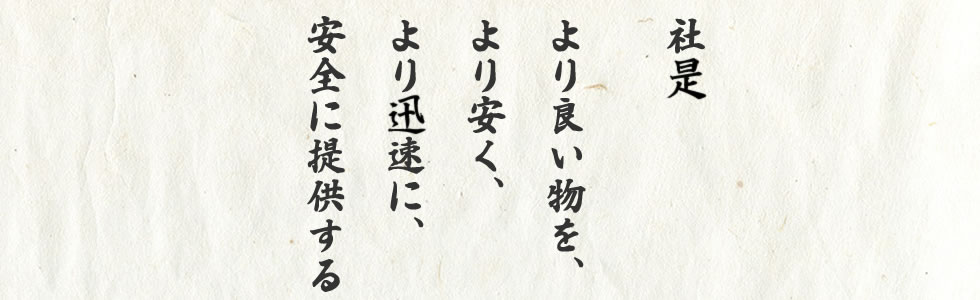 社是
より良い物を、
より安く、
より迅速に、
安全に提供する